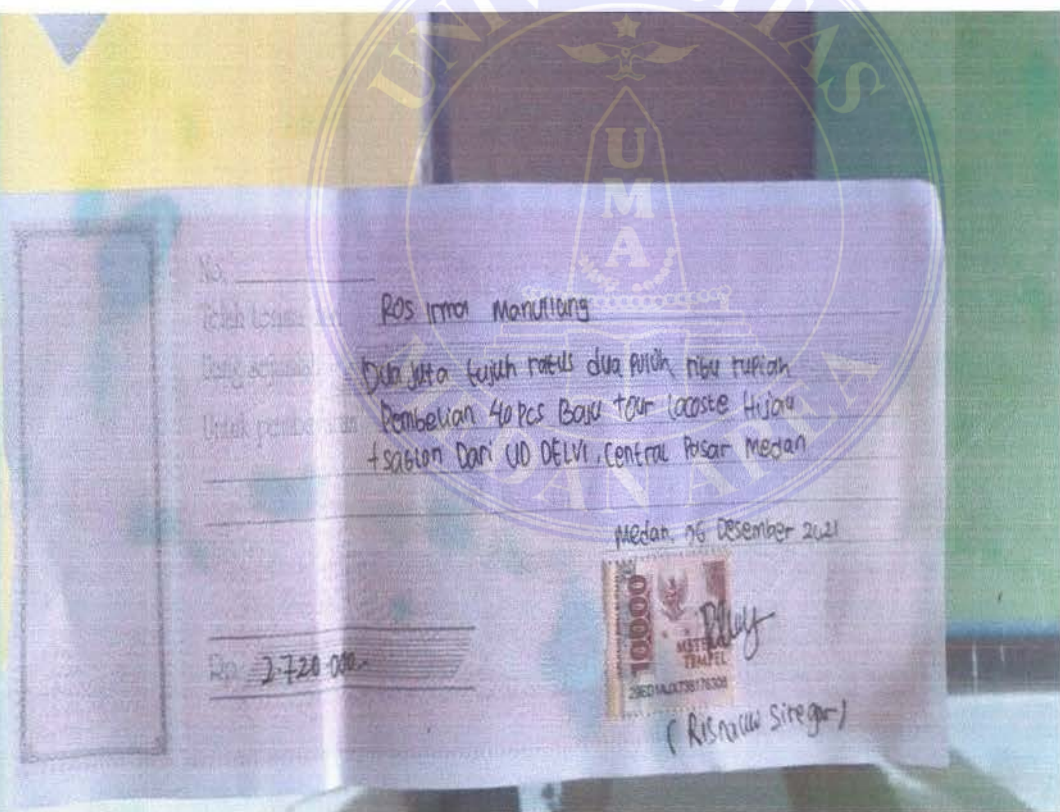 UNIVERSITAS
UMA
MEDAN AREA
No.
Telah terima dari Ros Irma Manullang
Uang sejumlah Dua Juta tujuh ratus dua puluh ribu rupiah
Untuk pembayaran Pembelian 40 Pcs Baju tour Lacoste Hijau
+ sablon Dari UD DELVI, Central Pasar Medan
Medan, 06 Desember 2021
10000
METERAI
TEMPEL
Rp. 2.720.000.-
Siregar)